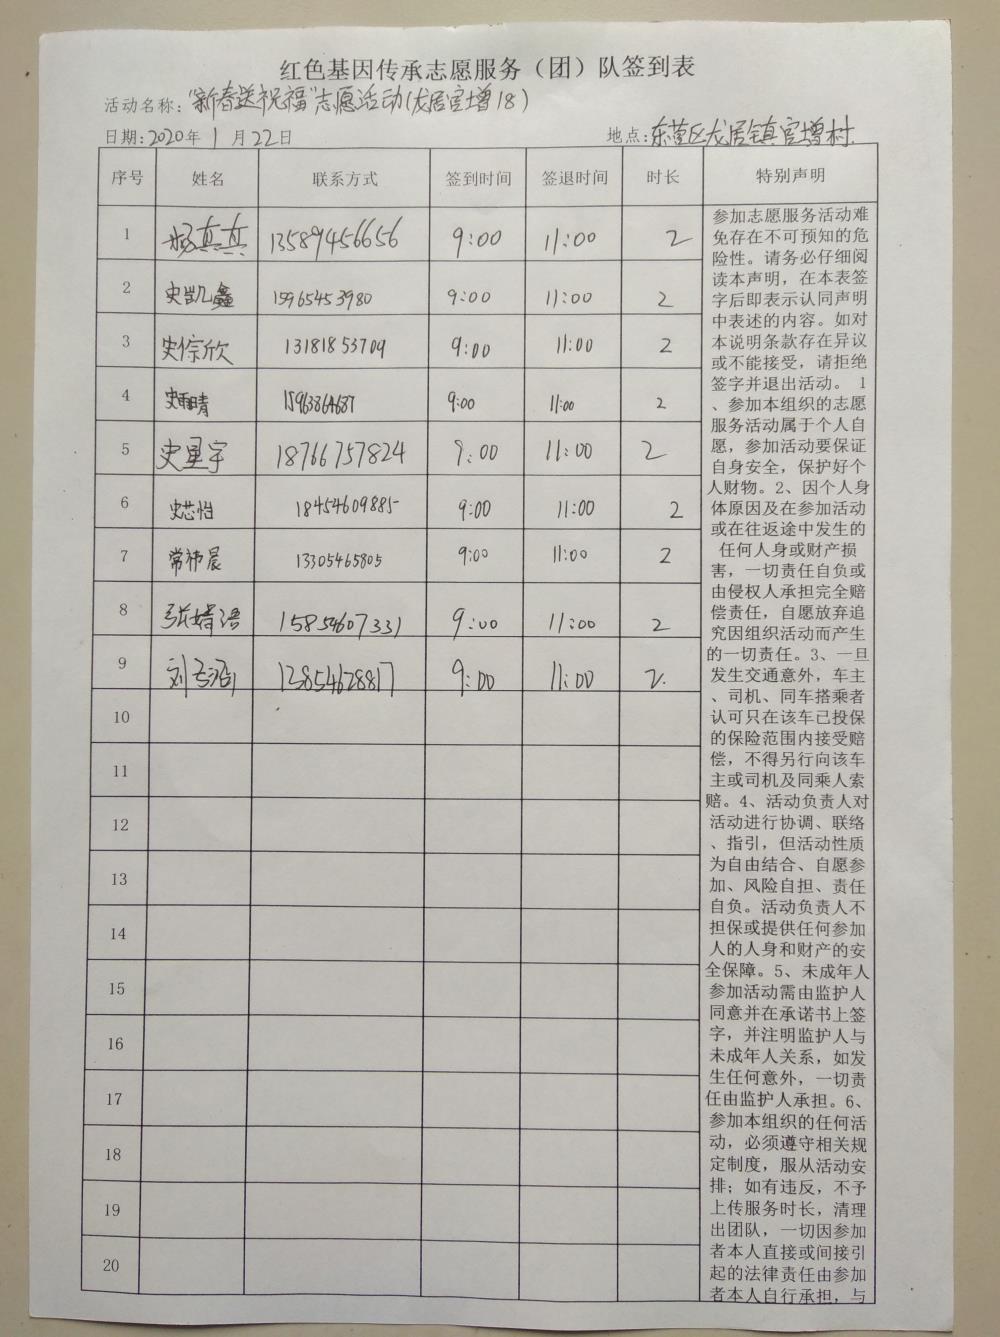 红色基因传承志愿服务（团）队签到表
活动名称：“新春送祝福”志愿活动(龙居官增18)
日期：2020年1月22日
地点：东营区龙居镇官增村
序号 姓名 联系方式 签到时间 签退时间 时长 特别声明
1 杨真真 13589456656 9:00 11:00 2
2 史凯鑫 15965453980 9:00 11:00 2
3 史倧欣 13181853709 9:00 11:00 2
4 史雨晴 15963864687 9:00 11:00 2
5 史星宇 18766757824 9:00 11:00 2
6 史芯怡 18454609885 9:00 11:00 2
7 常祎晨 13305465805 9:00 11:00 2
8 张婧语 15854607331 9:00 11:00 2
9 刘 12854628817 9:00 11:00 2
10
11
12
13
14
15
16
17
18
19
20
参加志愿服务活动难
免存在不可预知的危
险性。请务必仔细阅
读本声明，在本表签
字后即表示认同声明
中表述的内容。如对
本说明条款存在异议
或不能接受，请拒绝
签字并退出活动。 1
、参加本组织的志愿
服务活动属于个人自
愿，参加活动要保证
自身安全，保护好个
人财物。2、因个人身
体原因及在参加活动
或在往返途中发生的
任何人身或财产损
害，一切责任自负或
由侵权人承担完全赔
偿责任，自愿放弃追
究因组织活动而产生
的一切责任。3、一旦
发生交通意外，车主
、司机、同车搭乘者
认可只在该车已投保
的保险范围内接受赔
偿，不得另行向该车
主或司机及同乘人索
赔。4、活动负责人对
活动进行协调、联络
、指引，但活动性质
为自由结合、自愿参
加、风险自担、责任
自负。活动负责人不
担保或提供任何参加
人的人身和财产的安
全保障。5、未成年人
参加活动需由监护人
同意并在承诺书上签
字，并注明监护人与
未成年人关系，如发
生任何意外，一切责
任由监护人承担。6、
参加本组织的任何活
动，必须遵守相关规
定制度，服从活动安
排；如有违反，不予
上传服务时长，清理
出团队，一切因参加
者本人直接或间接引
起的法律责任由参加
者本人自行承担，与